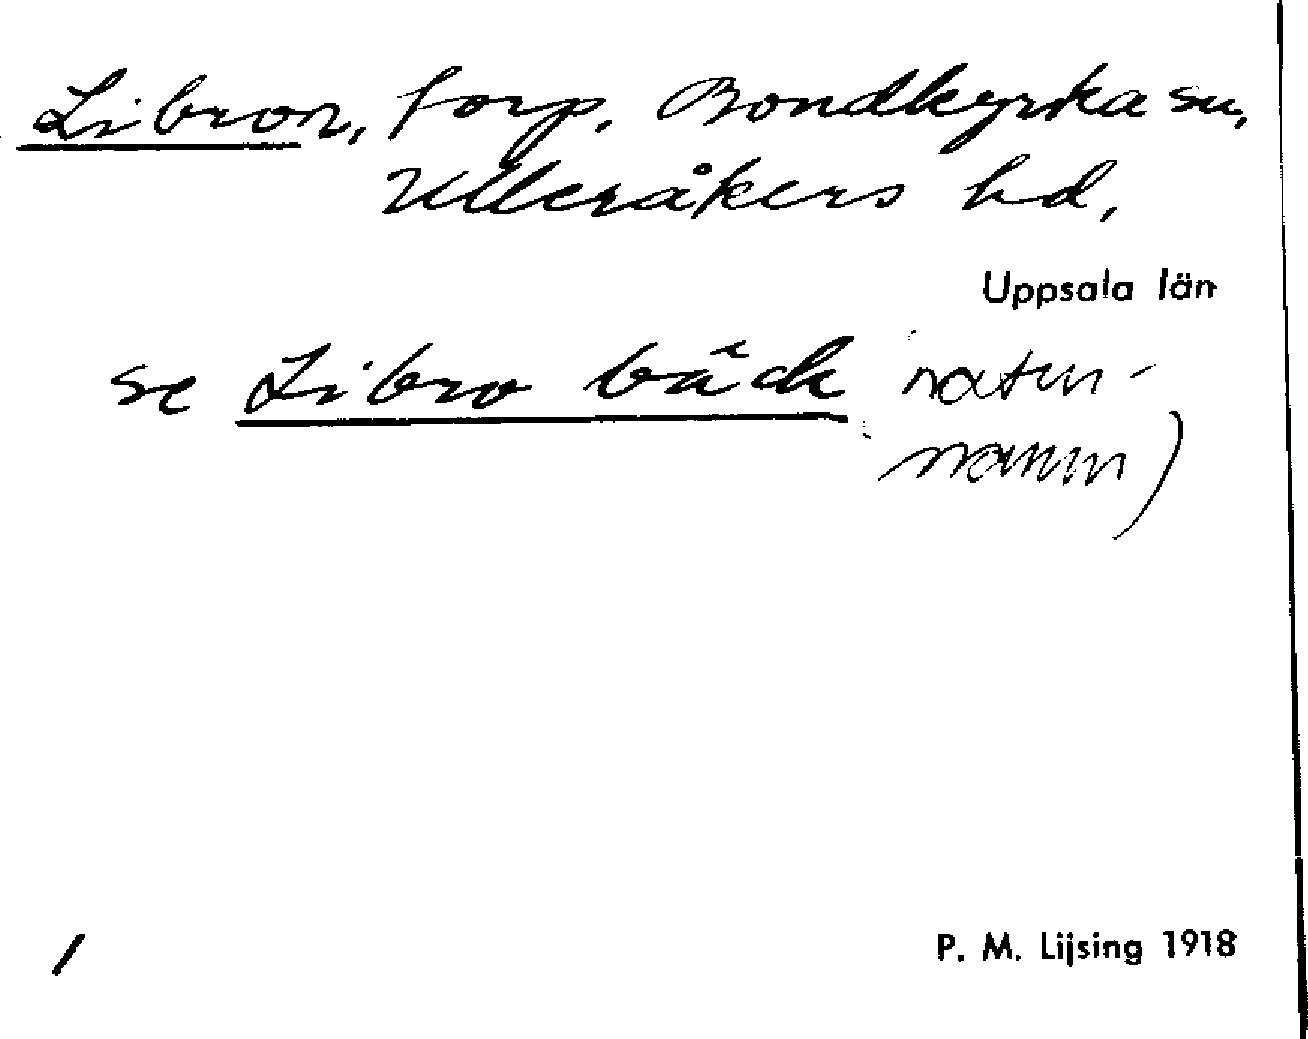 Libron, torp, Bondkyrka sn,
Ulleråkers hd,
Uppsala län
se Libro bäck (natur-
namn)
/ P. M. Lijsing 1918